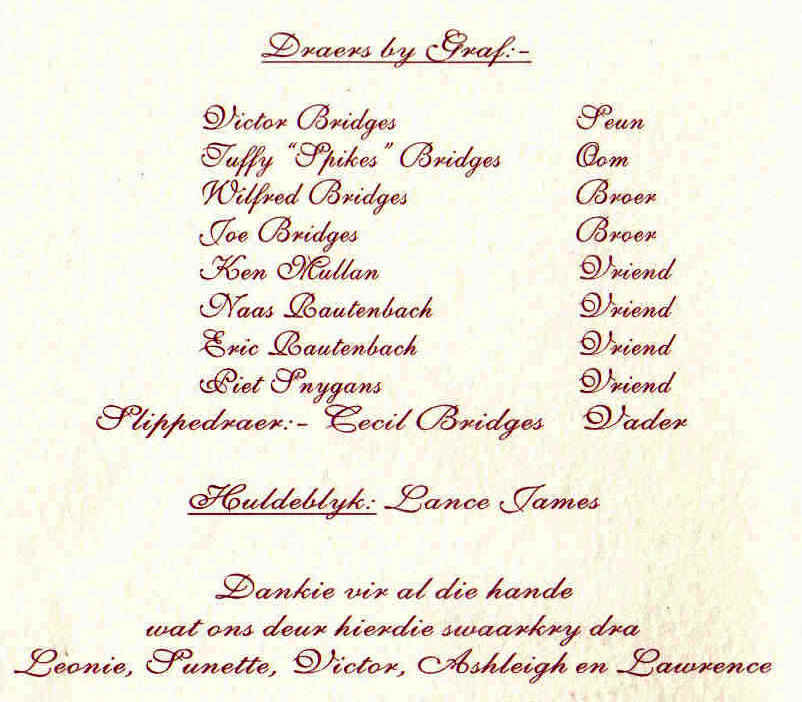 Draers by Graf:-
Victor Bridges Seun
Tuffy "Spikes" Bridges Oom
Wilfred Bridges Broer
Joe Bridges Broer
Ken Mullan Vriend
Naas Rautenbach Vriend
Eric Rautenbach Vriend
Piet Snygans Vriend
Slippedraer:- Cecil Bridges Vader
Huldeblyk: Lance James
Dankie vir al die hande
wat ons deur hierdie swaarkry dra
Leonie, Sunette, Victor, Ashleigh en Lawrence